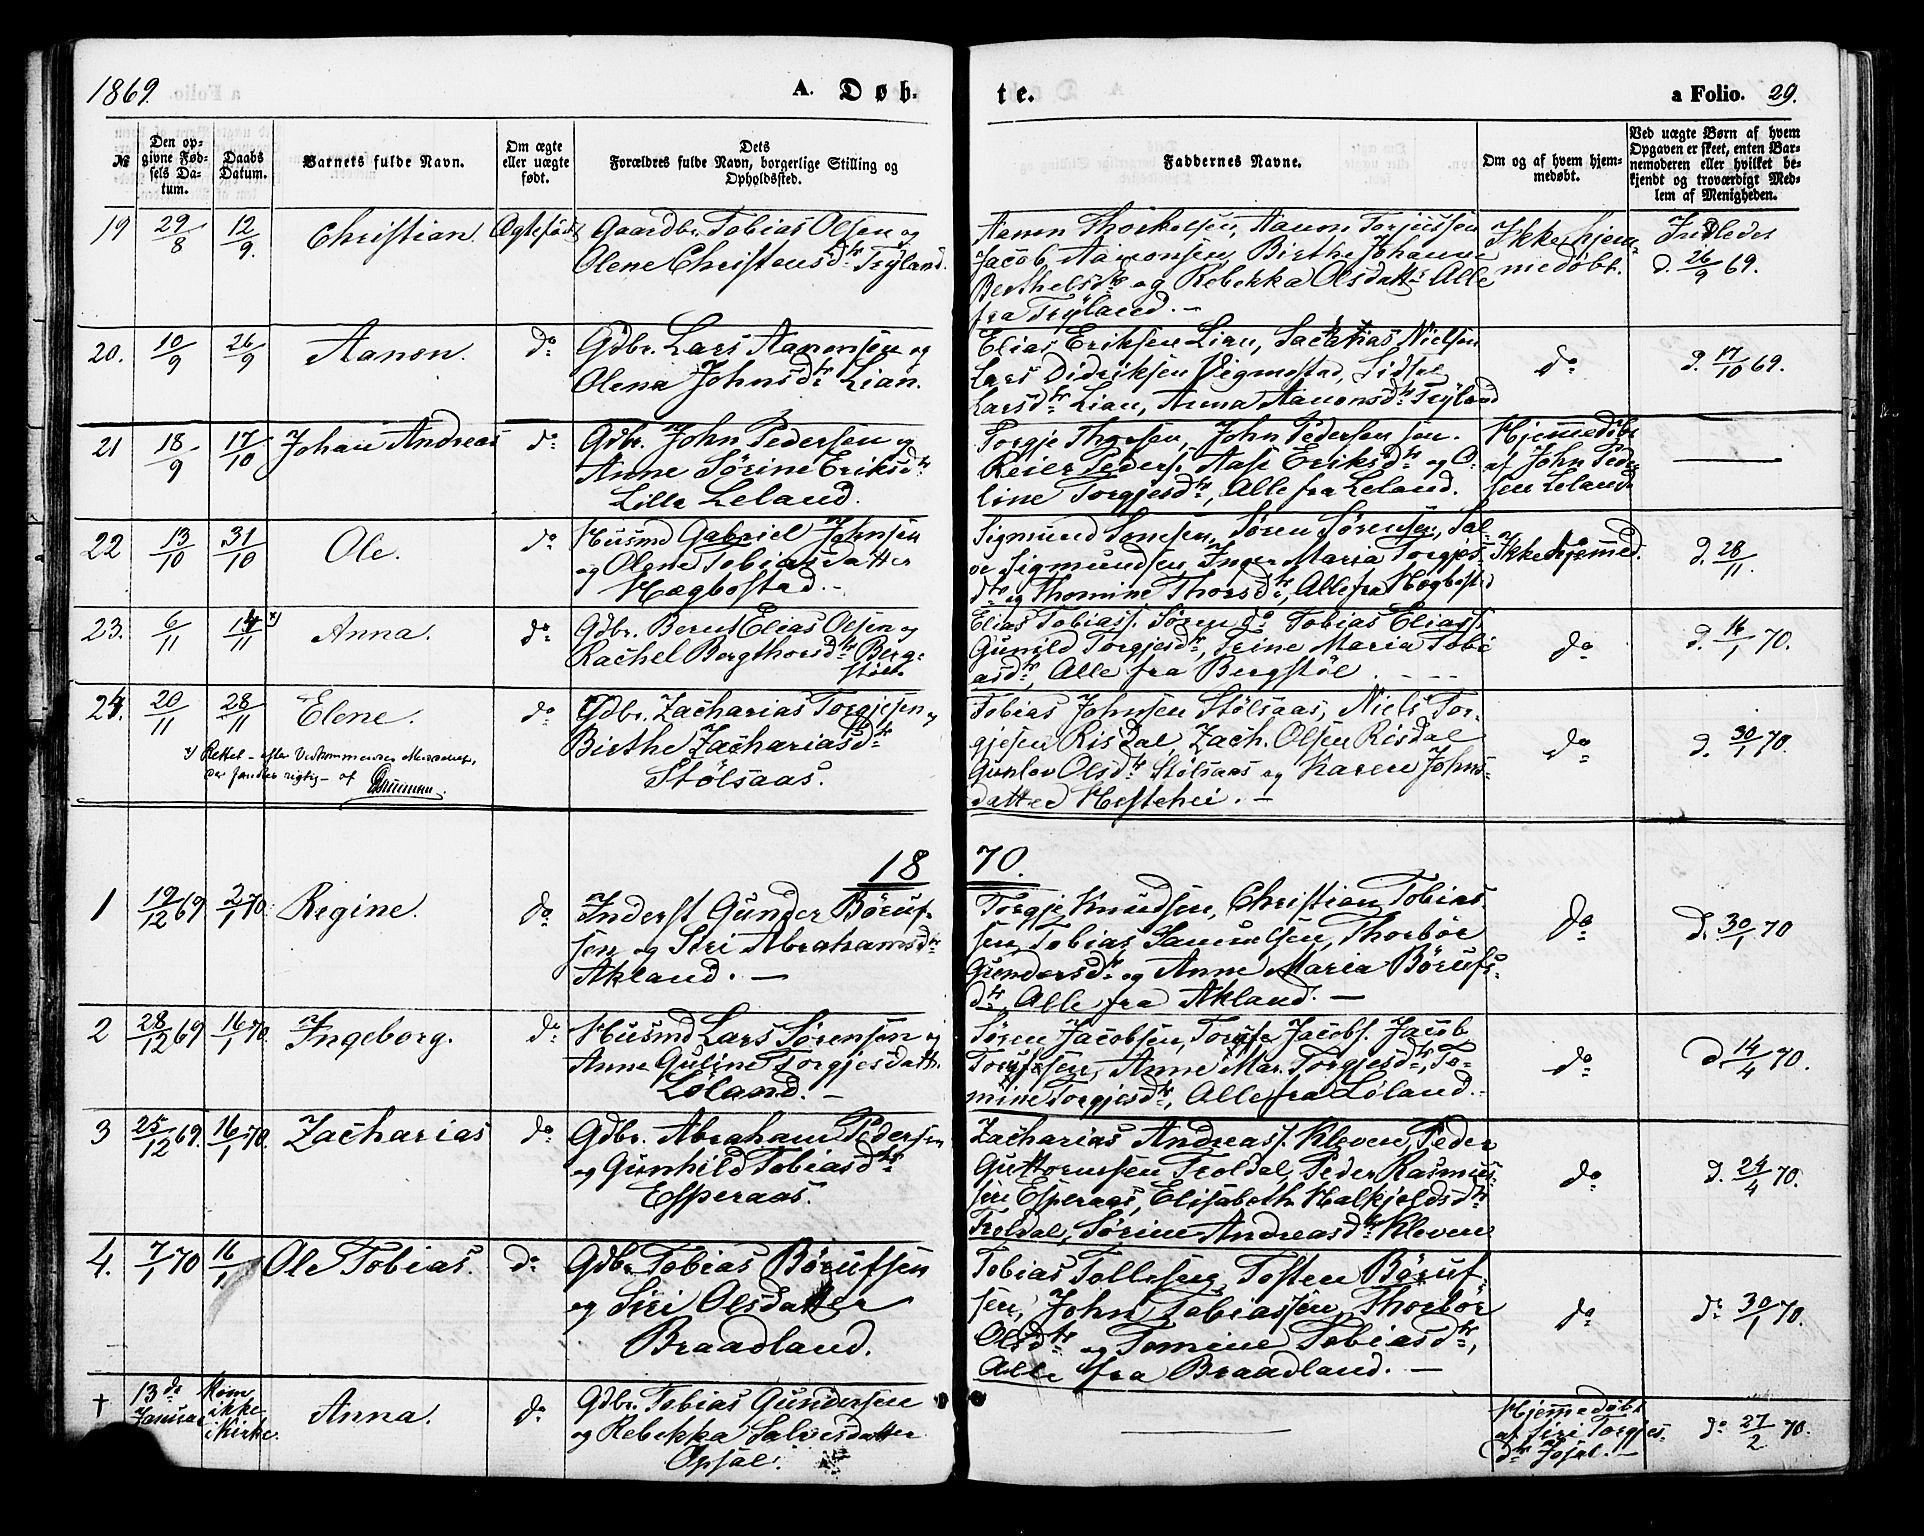 1869.
A. Døb-
te.
a Folio. 29.
№
Den op-
givne Fød-
sels Da-
tum.
Daabs
Datum.
Barnets fulde Navn.
Om ægte
eller uægte
født.
Dets
Forældres fulde Navn, borgerlige Stilling og
Opholdssted.
Faddernes Navne.
Om og af hvem hjem-
medøbt.
Ved uægte Børn af hvem
Opgaven er skeet, enten Bar-
nemoderen eller hvilket be-
kjendt og troværdigt Med-
lem af Menigheden.
19
29/8
12/9.
Christian.
Ægtefødt
Gaardbr. Tobias Olsen og
Olene Christensdtr Tryland.
Aanon Thorkelsen, Aanon Torjussen
Jacob Aanonsen, Birthe Johanne
Berthelsdtr og Rebekka Olsdatter Alle
fra Tryland. -
Ikke hjem-
medøbt.
Indledet
d. 26/9 69.
20.
10/9
26/9
Aanon.
do
Gdbr. Lars Aanonsen og
Olena Johnsdtr Lian.
Elias Eriksen Lian, Sacharias Nielsen
Lars Didriksen Vigmostad, Sidsel
Larsdtr Lian, Anna Aanonsdtr Tryland
do
d. 17/10 69.
21
18/9
17/10
Johan Andreas
do
Gdbr. John Pedersen og
Anne Sørine Eriksdtr
Lille Leland.
Torgje Thorsen, John Pedersen sen.
Reier Peders. Aase Eriksdtr og O-
line Torgjesdtr, Alle fra Leland.
Hjemmedøbt
af John Peder-
sen Leland
22
13/10
31/10
Ole.
do
Husmd Gabriel Johnsen
og Olene Tobiasdatter
Hægbostad. -
Sigmund Tomesen, Søren Sørensen, Sal-
ve Sigmundsen, Inger Maria Torgjes-
dtr og Thomine Thorsdtr, Alle fra Hægbostad
Ikke hjemmed.
d. 28/11.
23.
6/11
14/11 *)
Anna.
do
Gdbr. Berent Elias Olsen og
Rachel Bergthorsdtr Berg-
støel.
Elias Tobiass. Søren do Tobias Eliass.
Gunild Torgjesdtr, Trine Maria Tobi-
asdtr, Alle fra Bergstøl
do
d. 16/1 70.
24.
20/11
28/11
Elene.
do
Gdbr. Zacharias Torgjesen og
Birthe Zachariasdtr
Stølsaas.
*) Rettet - efter Vedkommendes
der fandtes rigtig - af
Tobias Johnsen Stølsaas, Niels Tor-
gjesen Risdal, Zach. Olsen Risdal
Gunlov Olsdtr Stølsaas og Karen Johns-
datter Heftehei. -
do
d. 30/1 70.
18
70.
1
19/12 69
2/1 70.
Regine.
do
Inderst Gunder Børuf-
sen og Siri Abrahamsdtr
Akland. -
Torgje Knudsen, Christian Tobias-
sen, Tobias Samuelsen, Thorbør
Gundersdtr og Anne Maria Børufs-
dtr, Alle fra Akland. -
do
d. 30/1 70
2
28/12 69
16/1 70.
Ingeborg.
do
Husmd Lars Sørensen og
Anne Guline Torgjesdatter
Løland. -
Søren Jacobsen, Toruf Jacobs. Jacob
Torufsen, Anne Mar. Torgjesdtr, To-
mine Torgjesdtr, Alle fra Løland. -
do
d. 14/4 70.
3
25/12 69.
16/1 70.
Zacharias
do
Gdbr. Abraham Pedersen
og Gunhild Tobiasdtr
Esperaas.
Zacharias Andreass. Kleven, Peder
Guttormsen Troldal, Peder Rasmus-
sen Esperaas, Elisabeth Halkjeldsdtr
Troldal, Sørine Andreasdtr Kleven
do
d. 24/4 70.
4.
7/1 70
16/1
Ole Tobias.
do
Gdbr. Tobias Børufsen
og Siri Olsdatter
Braadland.
Tobias Tollefsen, Tosten Børuf-
sen, John Tobiassen, Thorbør
Olsdtr og Tomine Tobiasdtr,
Alle fra Braadland. -
do
do 30/1 70.
†
13de
Januar
Kom
ikke
i Kirke.
Anna.
do
Gdbr. Tobias Gundersen
og Rebekka Salvesdatter
Opsal.
Hjemmedøbt
af Siri Torgjes-
dtr Josal. -
do 27/2 70.